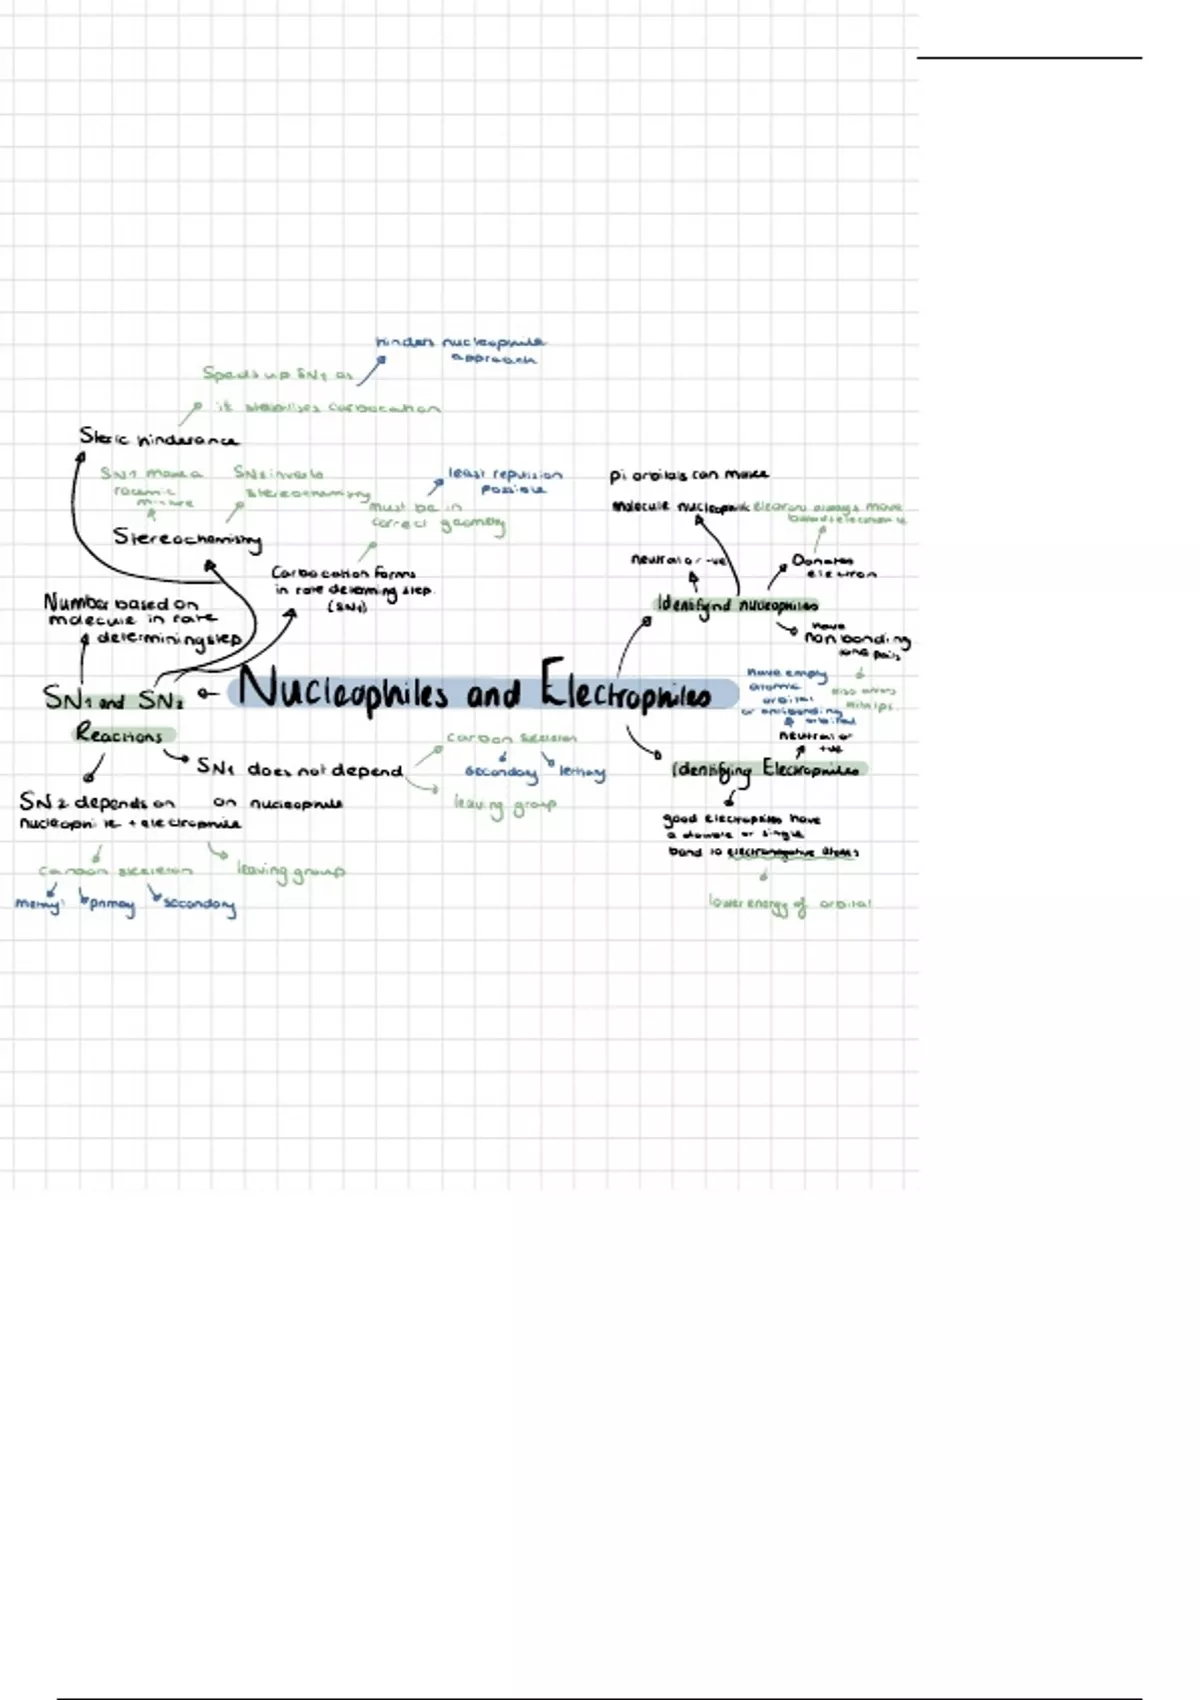 hinders nucleophile
approach
Speeds up SN1 as
it stabilises carbocation
Steric hinderance
SN1 make a
racemic
mixture
SN2 inverts
stereochemistry
least repulsion
possible
must be in
correct geometry
Stereochemistry
Carbocation forms
in rate determing step.
(SN1)
Number based on
molecule in rate
determining step
pi orbitals can make
molecule nucleophilic
electrons always move
neutral or -ve
Donates
electron
Identifying nucleophiles
have
non bonding
lone pairs
SN1 and SN2
Reactions
Nucleophiles and Electrophiles
have empty
atomic
orbital
or antibonding
orbital
neutral or
+ve
Identifying Electrophiles
good electrophiles have
a double or single
bond to electronegative atoms
lower energy of orbital
SN1 does not depend
on nucleophile
carbon skeleton
secondary
tertiary
leaving group
SN2 depends on
nucleophile + electrophile
carbon skeleton
leaving group
methyl
primary
secondary